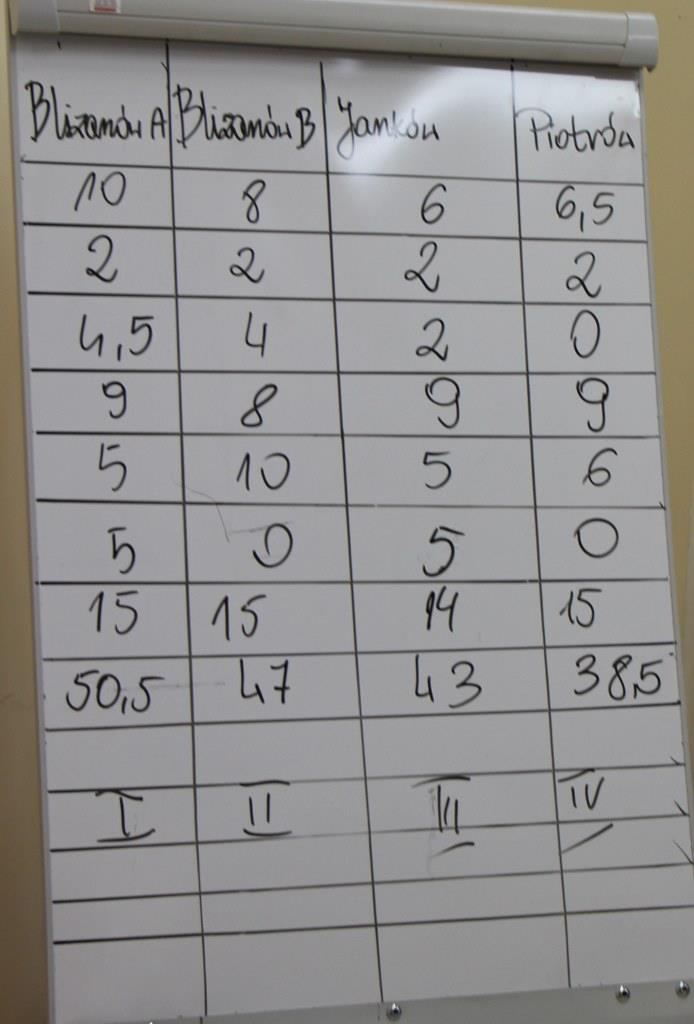 Blizanów A Blizanów B Janków Piotrów
10 8 6 6,5
2 2 2 2
4,5 4 2 0
9 8 9 9
5 10 5 6
5 0 5 0
15 15 14 15
50,5 47 43 38,5
I II III IV